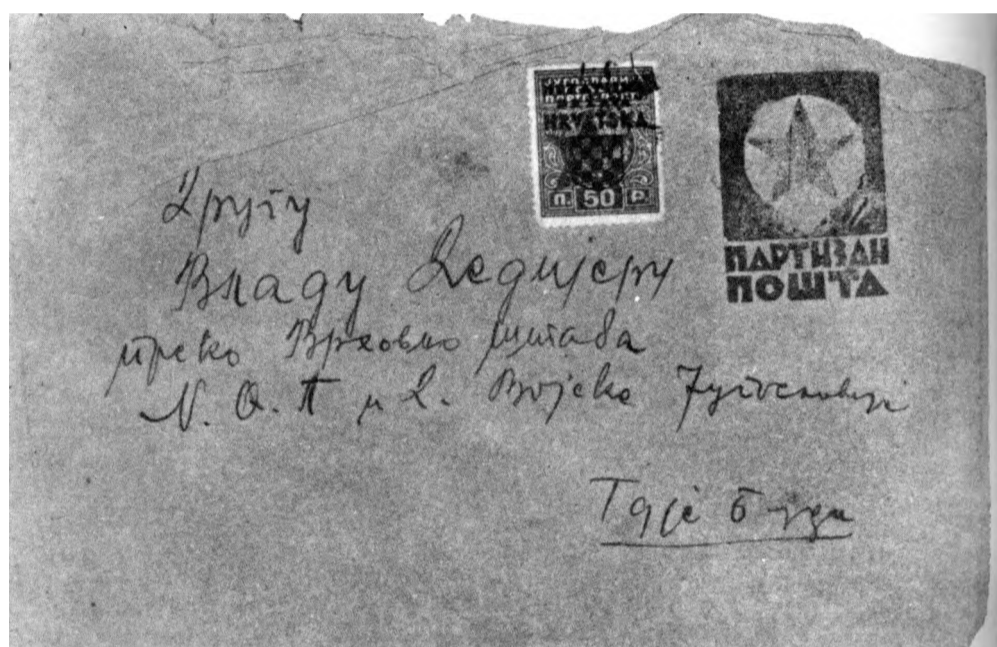 HRVATSKA
П. 50 P.
ПАРТИЗАН
ПОШТА
Другу
Владу Дедијеру
преко Врховно штаба
N. O. П и Д. Војске Југославије
Гдје буде